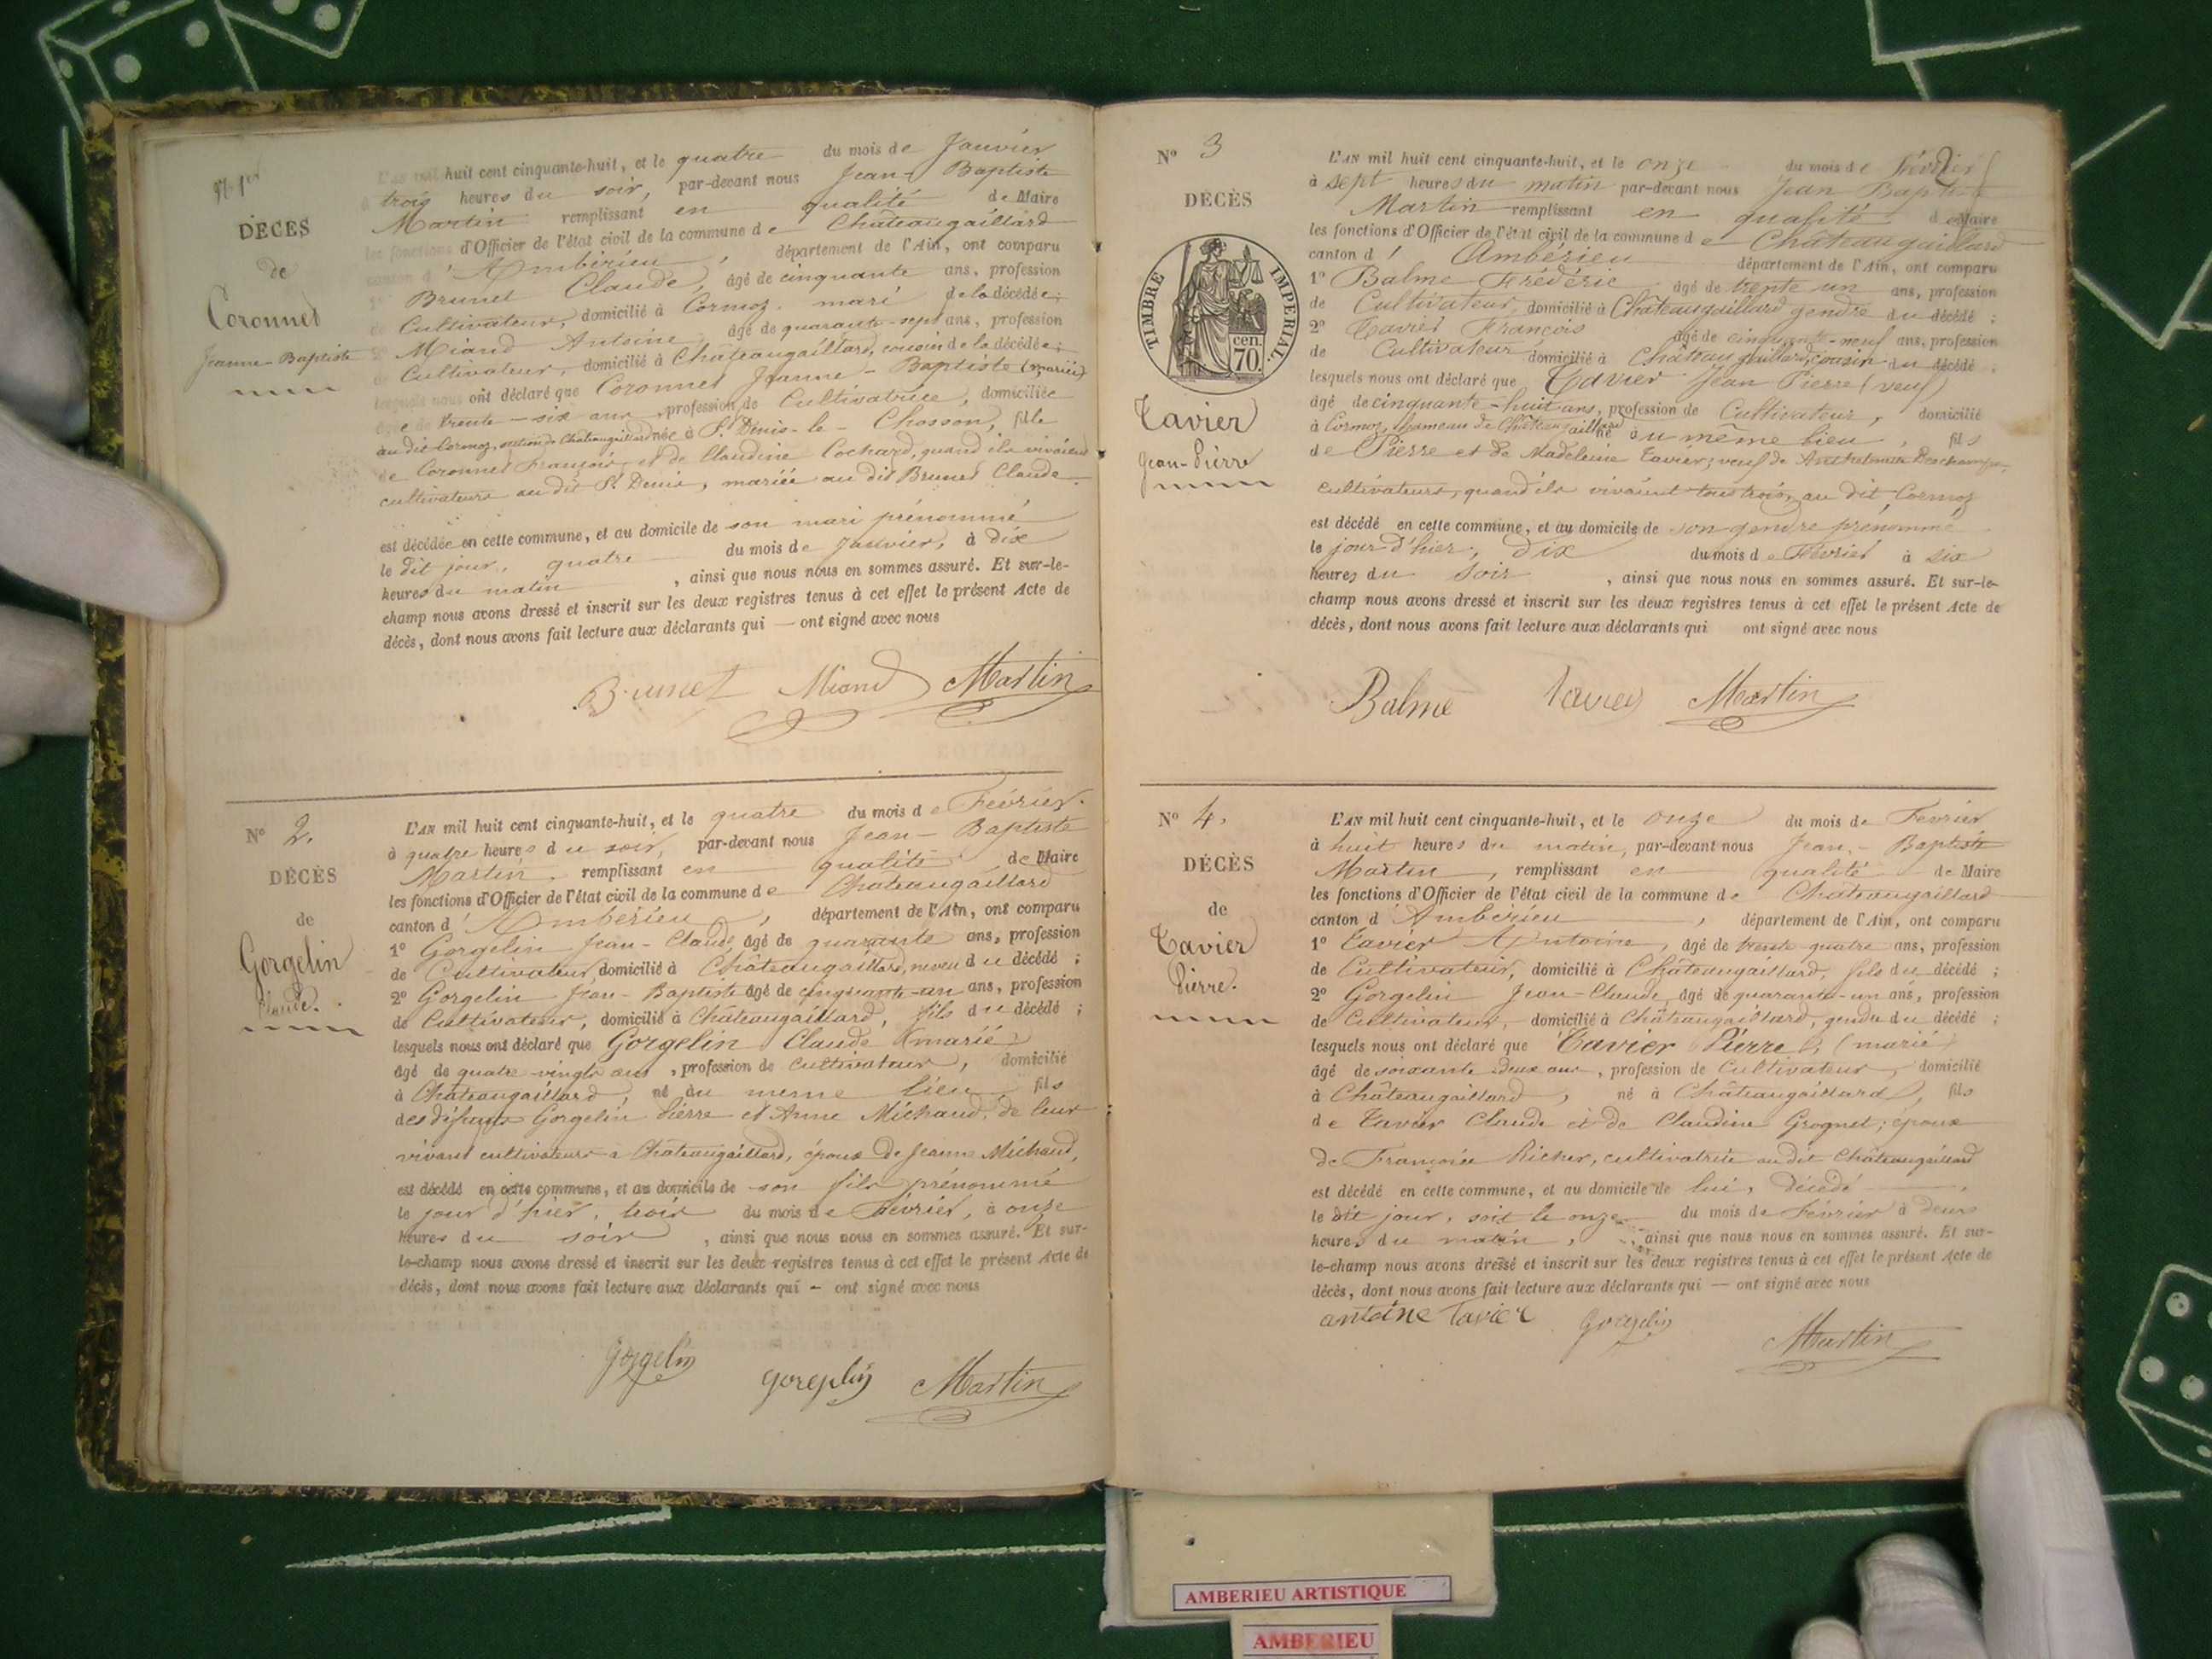 N° 1er
DÉCÈS
de
Coronnet
Jeanne-Baptiste
L'an mil huit cent cinquante-huit, et le quatre du mois de Janvier
à trois heures du soir, par-devant nous Jean-Baptiste
Martin remplissant en qualité de Maire
les fonctions d'Officier de l'état civil de la commune de Châteaugaillard
canton d'Ambérieu, département de l'Ain, ont comparu
1° Brunet Claude, âgé de cinquante ans, profession
de Cultivateur, domicilié à Cormoz, mari de la décédée;
2° Miand Antoine âgé de quarante-sept ans, profession
de Cultivateur, domicilié à Châteaugaillard, cousin de la décédée;
lesquels nous ont déclaré que Coronnet Jeanne-Baptiste (mariée)
âgée de trente-six ans, profession de Cultivatrice, domiciliée
au dit Cormoz, section de Châteaugaillard née à St. Denis-le-Chosson, fille
de Coronnet François et de Claudine Cochard, quand ils vivaient
cultivateurs au dit St. Denis, mariée au dit Brunet Claude
est décédée en cette commune, et au domicile de son mari prénommé
le dit jour, quatre du mois de Janvier, à dix
heures du matin, ainsi que nous nous en sommes assuré. Et sur-le-
champ nous avons dressé et inscrit sur les deux registres tenus à cet effet le présent Acte de
décès, dont nous avons fait lecture aux déclarants qui — ont signé avec nous
Brunet Miand Martin
N° 2.
DÉCÈS
de
Gorgelin
Claude.
L'AN mil huit cent cinquante-huit, et le quatre du mois de Février.
à quatre heures du soir, par-devant nous Jean-Baptiste
Martin. remplissant en qualité de Maire
les fonctions d'Officier de l'état civil de la commune de Châteaugaillard
canton d'Ambérieu, département de l'Ain, ont comparu
1° Gorgelin Jean-Claude, âgé de quarante ans, profession
de Cultivateur, domicilié à Châteaugaillard, neveu du décédé;
2° Gorgelin Jean-Baptiste âgé de cinquante-un ans, profession
de Cultivateur, domicilié à Châteaugaillard, fils du décédé;
lesquels nous ont déclaré que Gorgelin Claude (marié)
âgé de quatre-vingts ans, profession de Cultivateur, domicilié
à Châteaugaillard, né au même lieu, fils
des défunts Gorgelin Pierre et Anne Michaud, de leur
vivant cultivateurs à Châteaugaillard, époux de Jeanne Michaud,
est décédé en cette commune, et au domicile de son fils prénommé
le jour d'hier, trois du mois de Février, à onze
heures du soir, ainsi que nous nous en sommes assuré. Et sur-
le-champ nous avons dressé et inscrit sur les deux registres tenus à cet effet le présent Acte de
décès, dont nous avons fait lecture aux déclarants qui — ont signé avec nous
Gorgelin gorgelin Martin
N° 3
DÉCÈS
TIMBRE IMPÉRIAL.
cen. 70.
Tavier
Jean-Pierre
L'AN mil huit cent cinquante-huit, et le onze du mois de Février
à sept heures du matin par-devant nous Jean Baptiste
Martin remplissant en qualité de Maire
les fonctions d'Officier de l'état civil de la commune de Châteaugaillard
canton d'Ambérieu département de l'Ain, ont comparu
1° Balme Frédéric âgé de trente un ans, profession
de Cultivateur, domicilié à Châteaugaillard gendre du décédé;
2° Tavier François âgé de cinquante-neuf ans, profession
de Cultivateur domicilié à Châteaugaillard, cousin du décédé;
lesquels nous ont déclaré que Tavier Jean Pierre (veuf)
âgé de cinquante-huit ans, profession de Cultivateur, domicilié
à Cormoz, hameau de Châteaugaillard né au même lieu, fils
de Pierre et de Madeleine Tavier; veuf de Deschamps,
cultivateurs, quand ils vivaient tous trois, au dit Cormoz
est décédé en cette commune, et au domicile de son gendre prénommé
le jour d'hier, dix du mois de Février à six
heures du soir, ainsi que nous nous en sommes assuré. Et sur-le-
champ nous avons dressé et inscrit sur les deux registres tenus à cet effet le présent Acte de
décès, dont nous avons fait lecture aux déclarants qui ont signé avec nous
Balme Tavier Martin
N° 4.
DÉCÈS
de
Tavier
Pierre.
L'AN mil huit cent cinquante-huit, et le onze du mois de Février
à huit heures du matin, par-devant nous Jean-Baptiste
Martin, remplissant en qualité de Maire
les fonctions d'Officier de l'état civil de la commune de Châteaugaillard
canton d'Ambérieu, département de l'Ain, ont comparu
1° Tavier Antoine, âgé de trente-quatre ans, profession
de Cultivateur, domicilié à Châteaugaillard, fils du décédé;
2° Gorgelin Jean-Claude, âgé de quarante-un ans, profession
de Cultivateur, domicilié à Châteaugaillard, gendre du décédé;
lesquels nous ont déclaré que Tavier Pierre, (marié)
âgé de soixante deux ans, profession de Cultivateur, domicilié
à Châteaugaillard, né à Châteaugaillard, fils
de Tavier Claude et de Claudine Grognet; époux
de Françoise Richer, cultivatrice au dit Châteaugaillard
est décédé en cette commune, et au domicile de lui, décédé
le dit jour, soit le onze du mois de Février à deux
heures du matin, ainsi que nous nous en sommes assuré. Et sur-
le-champ nous avons dressé et inscrit sur les deux registres tenus à cet effet le présent Acte de
décès, dont nous avons fait lecture aux déclarants qui — ont signé avec nous
antoine Tavier Gorgelin
Martin
AMBERIEU ARTISTIQUE
AMBERIEU